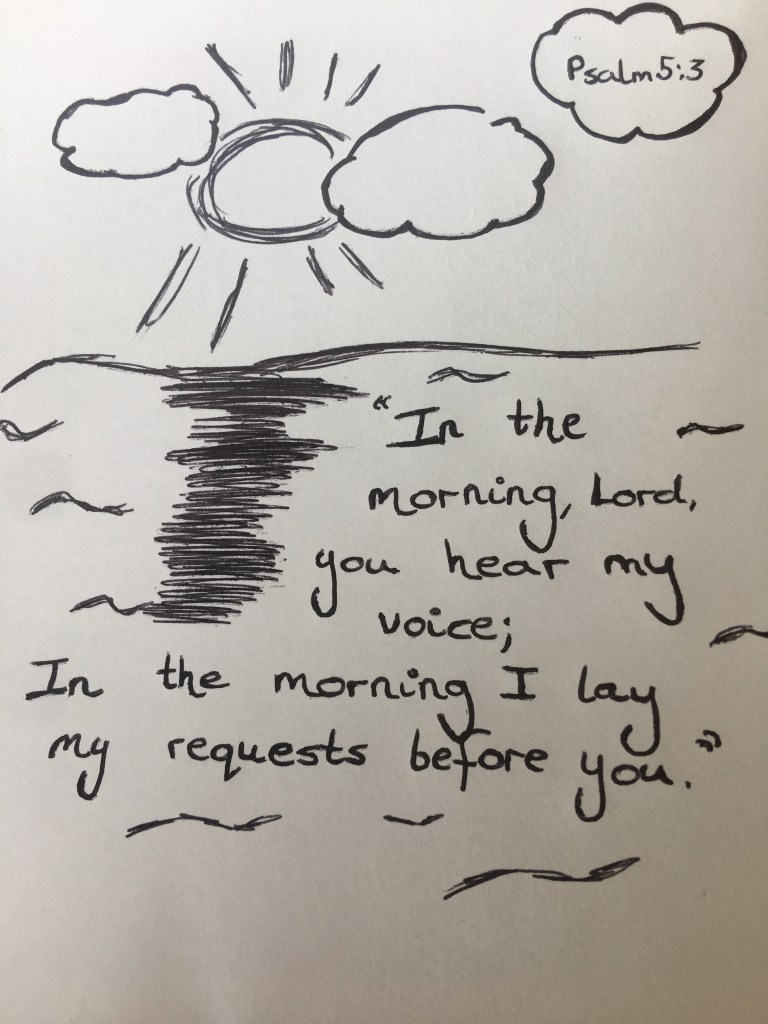 Psalm 5:3
"In the
morning, Lord,
you hear my
voice;
In the morning I lay
my requests before you."